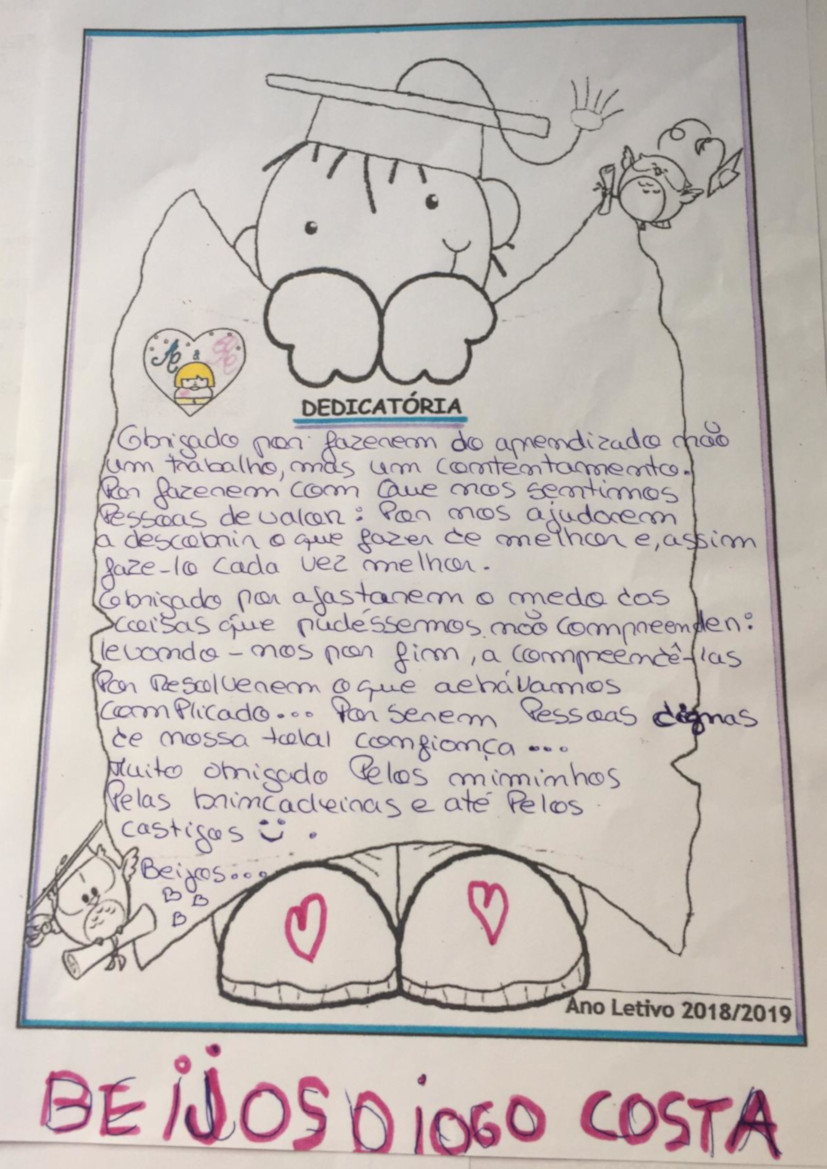 DEDICATÓRIA
Obrigado por fazerem do aprendizado não
um trabalho, mas um contentamento.
Por fazerem com que nos sentimos
Pessoas de valor: Por nos ajudarem
a descobrir o que fazer de melhor e, assim
faze-lo cada vez melhor.
Obrigado por afastarem o medo das
coisas que pudéssemos não compreender:
levando-nos por fim, a compreendê-las
Por Resolverem o que achávamos
complicado... Por serem Pessoas dignas
de nossa total confiança...
Muito obrigado Pelos miminhos
Pelas brincadeiras e até Pelos
castigos .
Beijos...
B B
B
Ano Letivo 2018/2019
BEijOS DiOGO COSTA